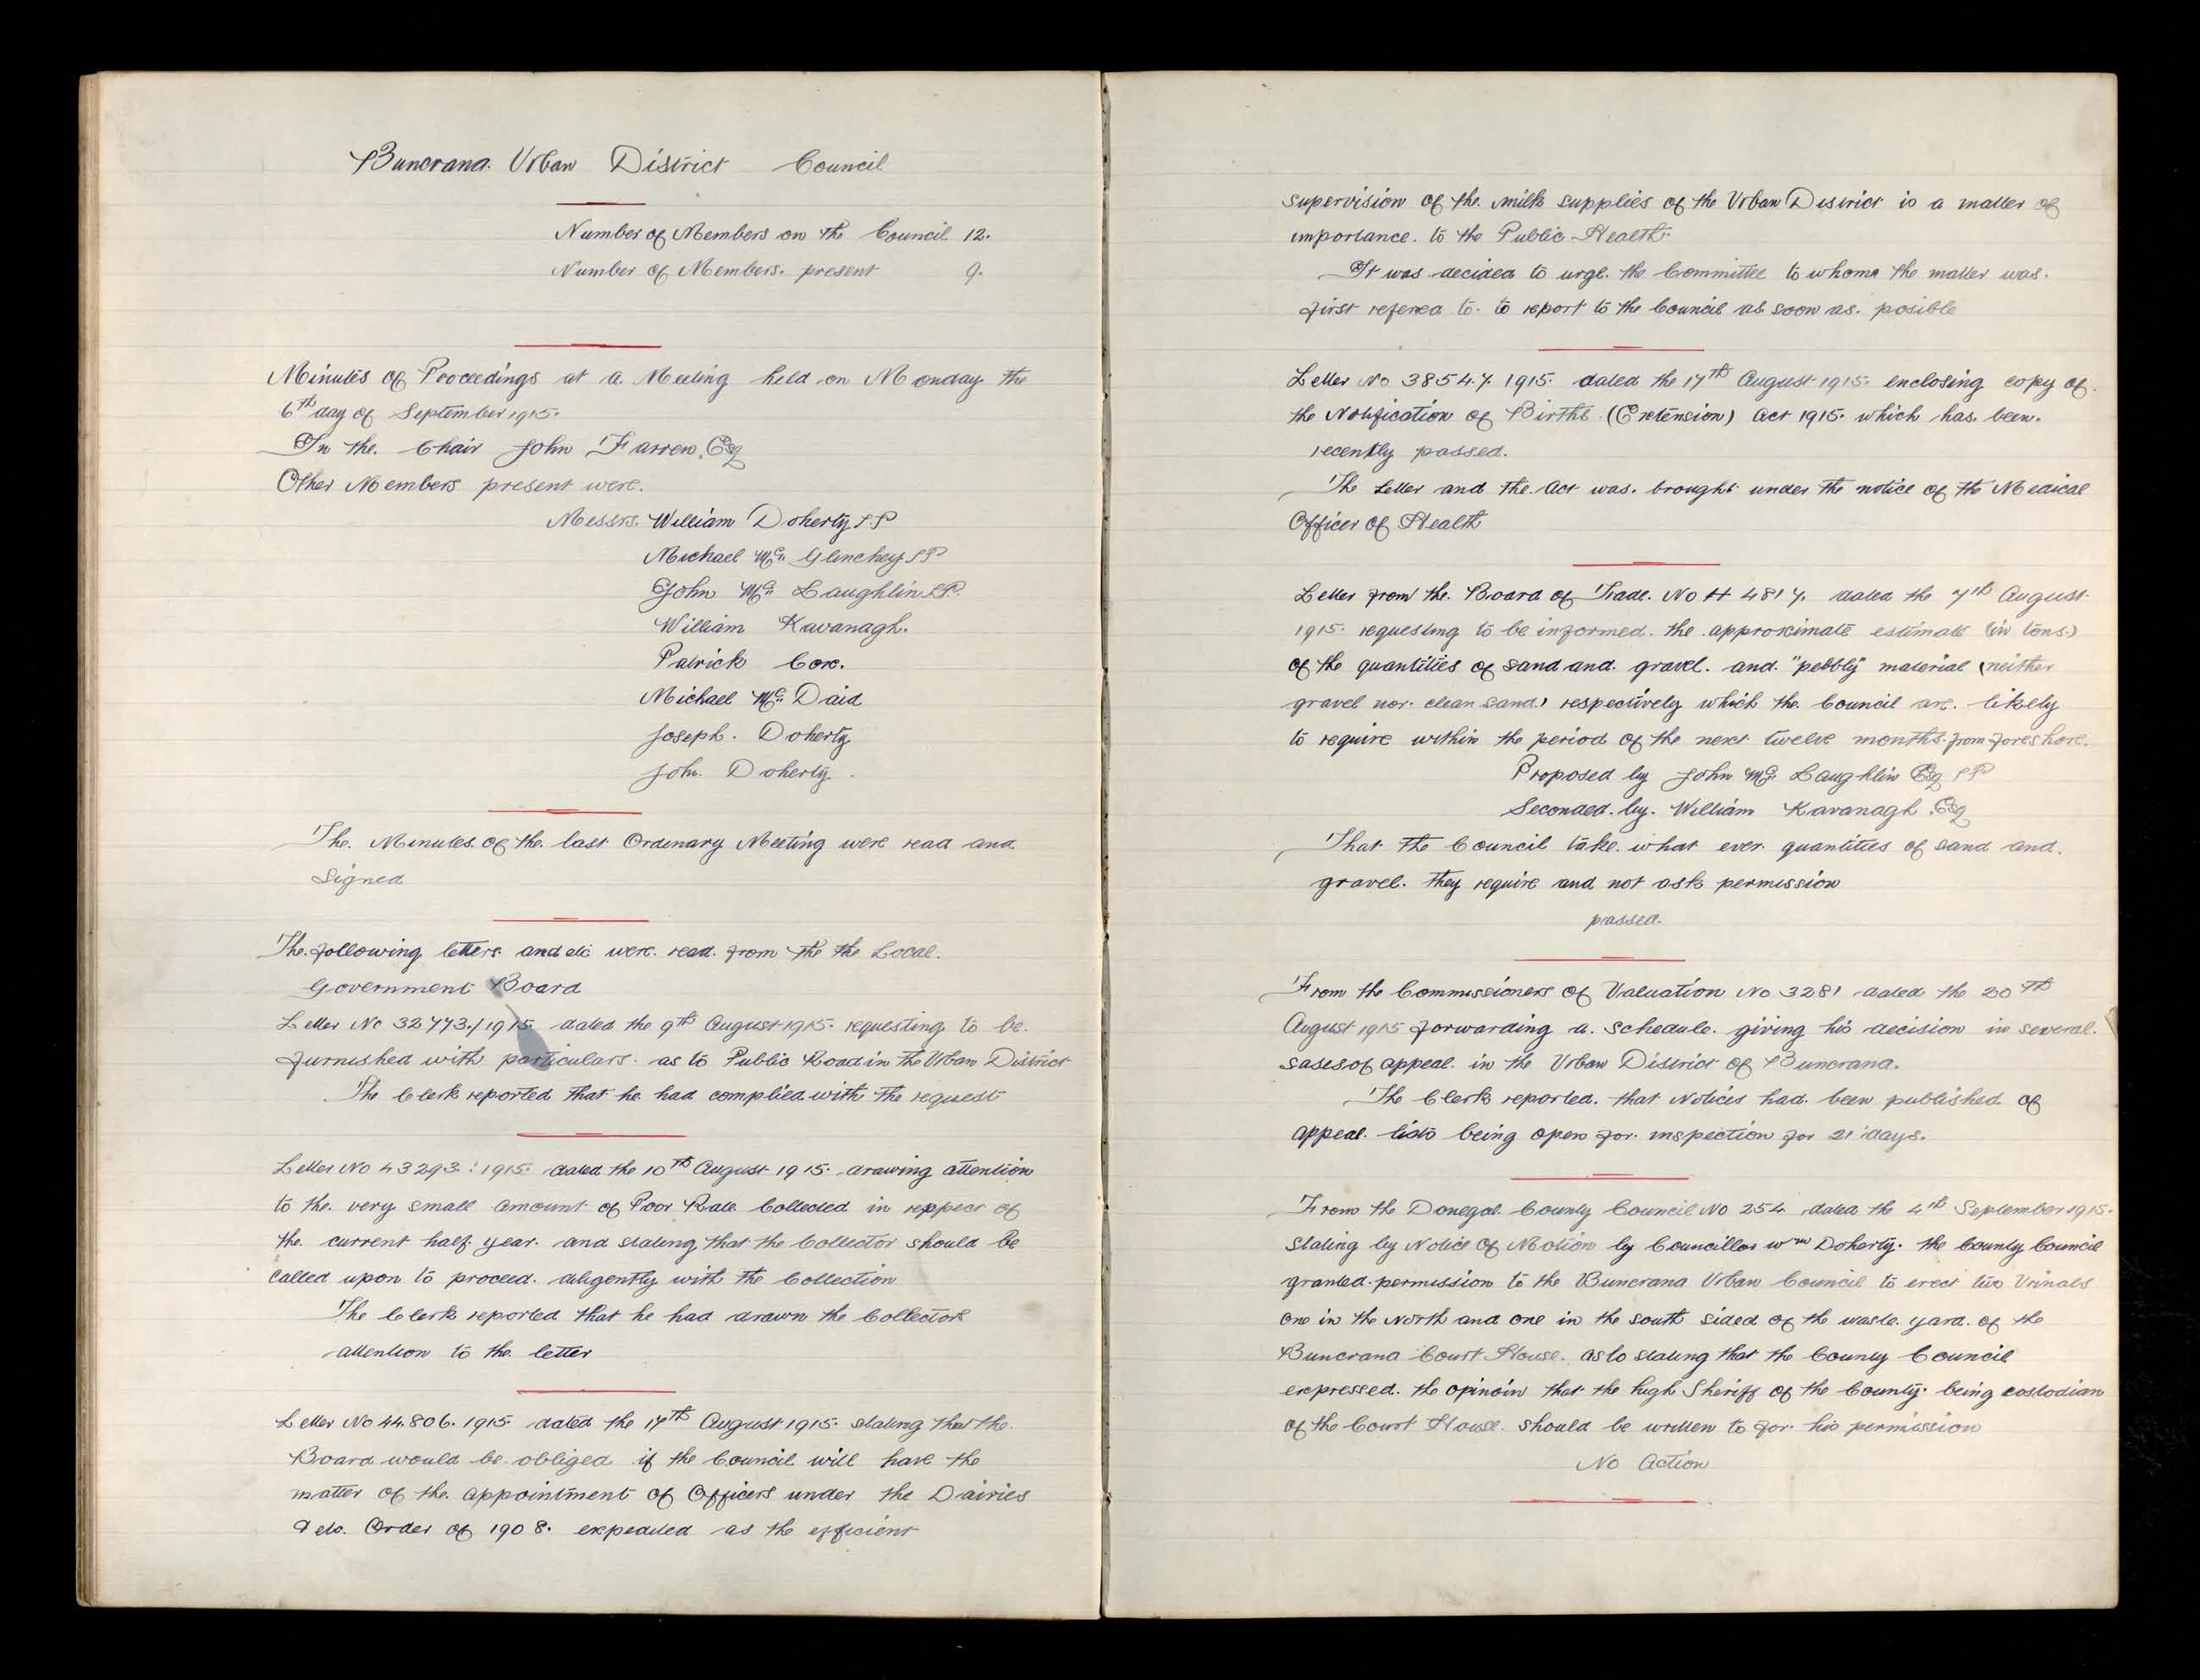 Buncrana Urban District Council
Number of Members on the Council 12.
Number of Members present 9.
Minutes of Proceedings at a Meeting held on Monday the
6th day of September 1915.
In the Chair John Farren Esq
Other Members present were.
Messrs. William Doherty J.P
Michael Mc Glinchey J P
John Mc Laughlin J.P.
William Kavanagh.
Patrick Coxe.
Michael Mc Daid
Joseph Doherty
John Doherty.
The Minutes of the last Ordinary Meeting were read and
Signed
The following letters and etc were read from the the Local.
Government Board
Letter No 32773./1915 dated the 9th August 1915. requesting to be
furnished with particulars as to Public Road in the Urban District
The Clerk reported that he had complied with the request
Letter No 43293: 1915. dated the 10th August 1915. drawing attention
to the very small amount of Poor Rate Collected in respect of
the current half year. and stating that the Collector should be
called upon to proceed diligently with the Collection
The Clerk reported that he had drawn the Collectors
attention to the letter
Letter No 44.806. 1915. dated the 17th August 1915. stating that the
Board would be obliged if the Council will have the
matter of the appointment of Officers under the Dairies
& etc. Order of 1908. expedited as the efficient
supervision of the milk supplies of the Urban District is a matter of
importance. to the Public Health.
It was decided to urge the Committee to whome the matter was.
first refered to. to report to the Council as soon as. posible
Letter No 38547. 1915. dated the 17th August 1915. enclosing copy of
the Notification of Births (Extension) Act 1915. which has been.
recently passed.
The Letter and the Act was. brought under the notice of the Medical
Officer of Health
Letter from the Board of Trade. No H 4817. dated the 7th August
1915. requesting to be informed the approximate estimate (in tons.)
of the quantities of sand and gravel. and "pebbly" material (neither
gravel nor clean sand) respectively which the Council are. likely
to require within the period of the next twelve months from foreshore.
Proposed by John Mc Laughlin Esq J P
Seconded by. William Kavanagh Esq
That the Council take what ever quantities of sand and
gravel. they require and not ask permission
passed.
From the Commissioners of Valuation No 3281 dated the 20th
August 1915 forwarding a schedule giving his decision in several.
sases of appeal in the Urban District of Buncrana.
The Clerk reported. that Notices had been published of
appeal lists being open for inspection for 21 days.
From the Donegal County Council No 254 dated the 4th September 1915.
stating by Notice of Motion by Councillor Wm Doherty. the County Council
granted permission to the Buncrana Urban Council to erect two Urinals
one in the North and one in the south sided of the waste yard. of the
Buncrana Court House. aslo stating that the County Council
expressed. the opinoin that the high Sheriff of the County. being custodian
of the Court House should be written to for his permission
No Action